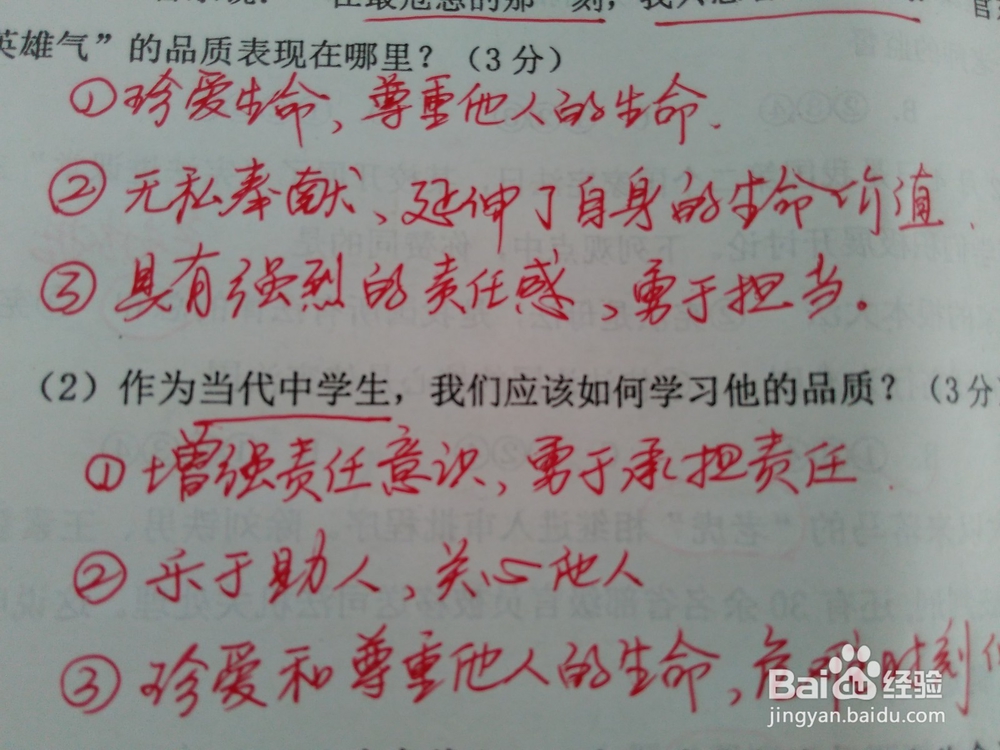 在最危急的那一刻，我只想
英雄气”的品质表现在哪里？（3分）
①珍爱生命，尊重他人的生命.
②无私奉献、延伸了自身的生命价值.
③具有强烈的责任感，勇于担当.
（2）作为当代中学生，我们应该如何学习他的品质？（3分）
①增强责任意识，勇于承担责任.
②乐于助人，关心他人
③珍爱和尊重他人的生命，危难时刻
Baidu经验
jingyan.baidu.com